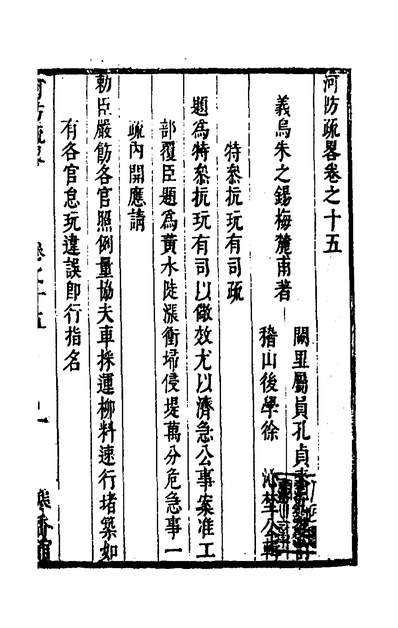 河防疏畧卷之十五
義烏朱之錫梅麓甫著
闕里屬員孔貞來
稽山後學徐沁埜公輯
特叅抗玩有司疏
題為特叅抗玩有司以儆效尤以濟急公事案准工
部覆臣題為黃水陡漲衝埽侵堤萬分危急事一
疏內開應請
勅臣嚴飭各官照例量協夫車採運柳料速行堵築如
有各官怠玩違誤即行指名
河防疏畧
卷之十五